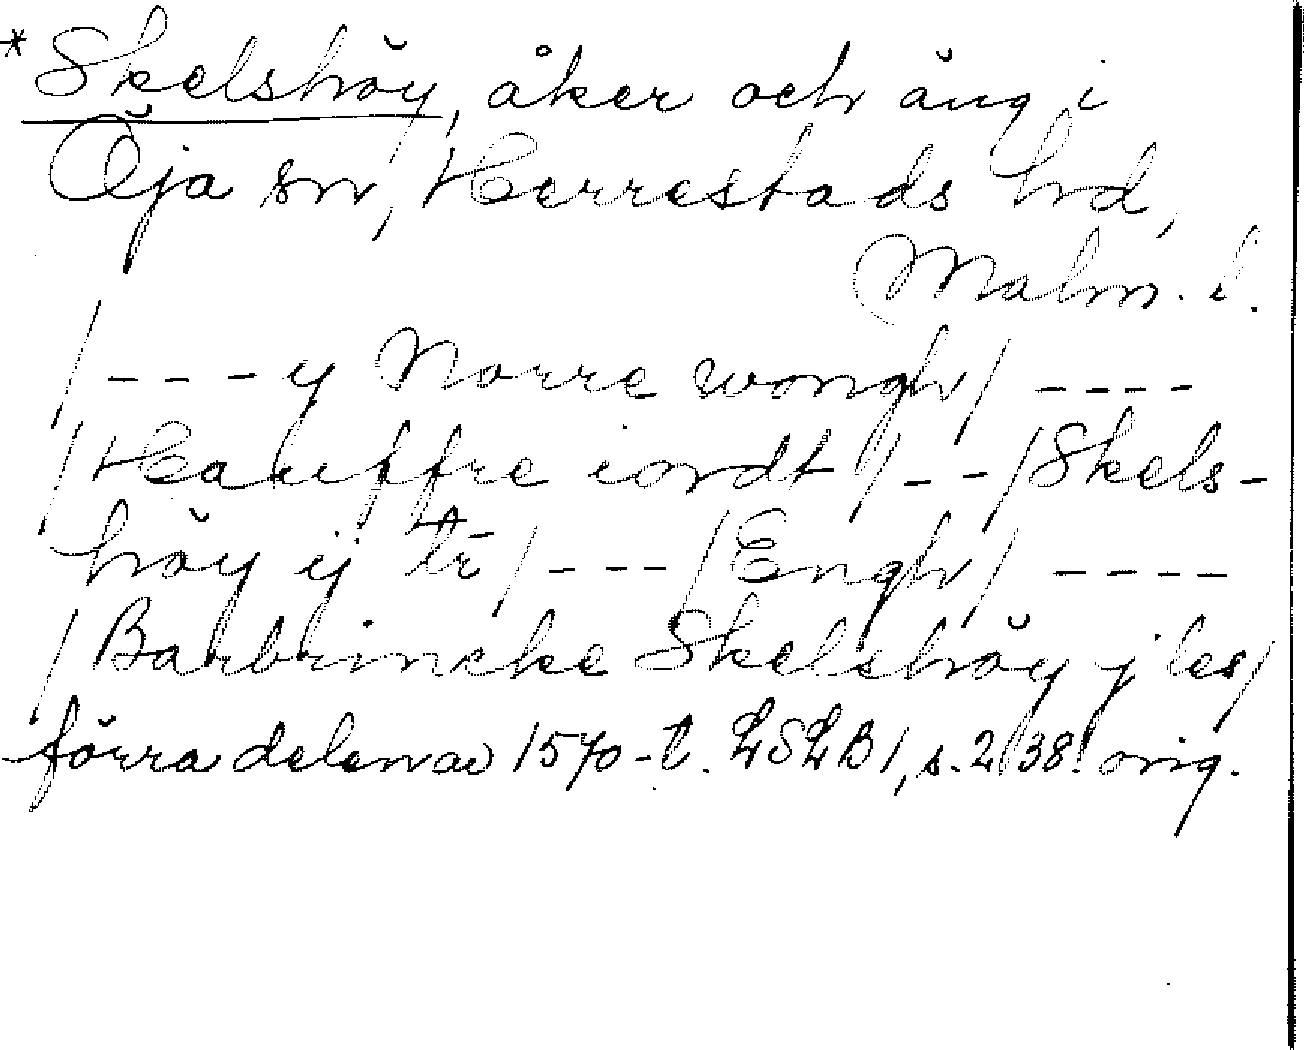 * Skelshöy, åker och äng i
Öja sn, Herrestads hd,
Malm. l.
/ - - - y Norre wongh / - - - -
/ Hauffre iordt / - - / Skels-
höy ij tr̄ / - - - / Engh / - - - -
/ Barbrincke Skelshöy j les /
förra delen av 1570-t. LSLB 1, s. 238. orig.